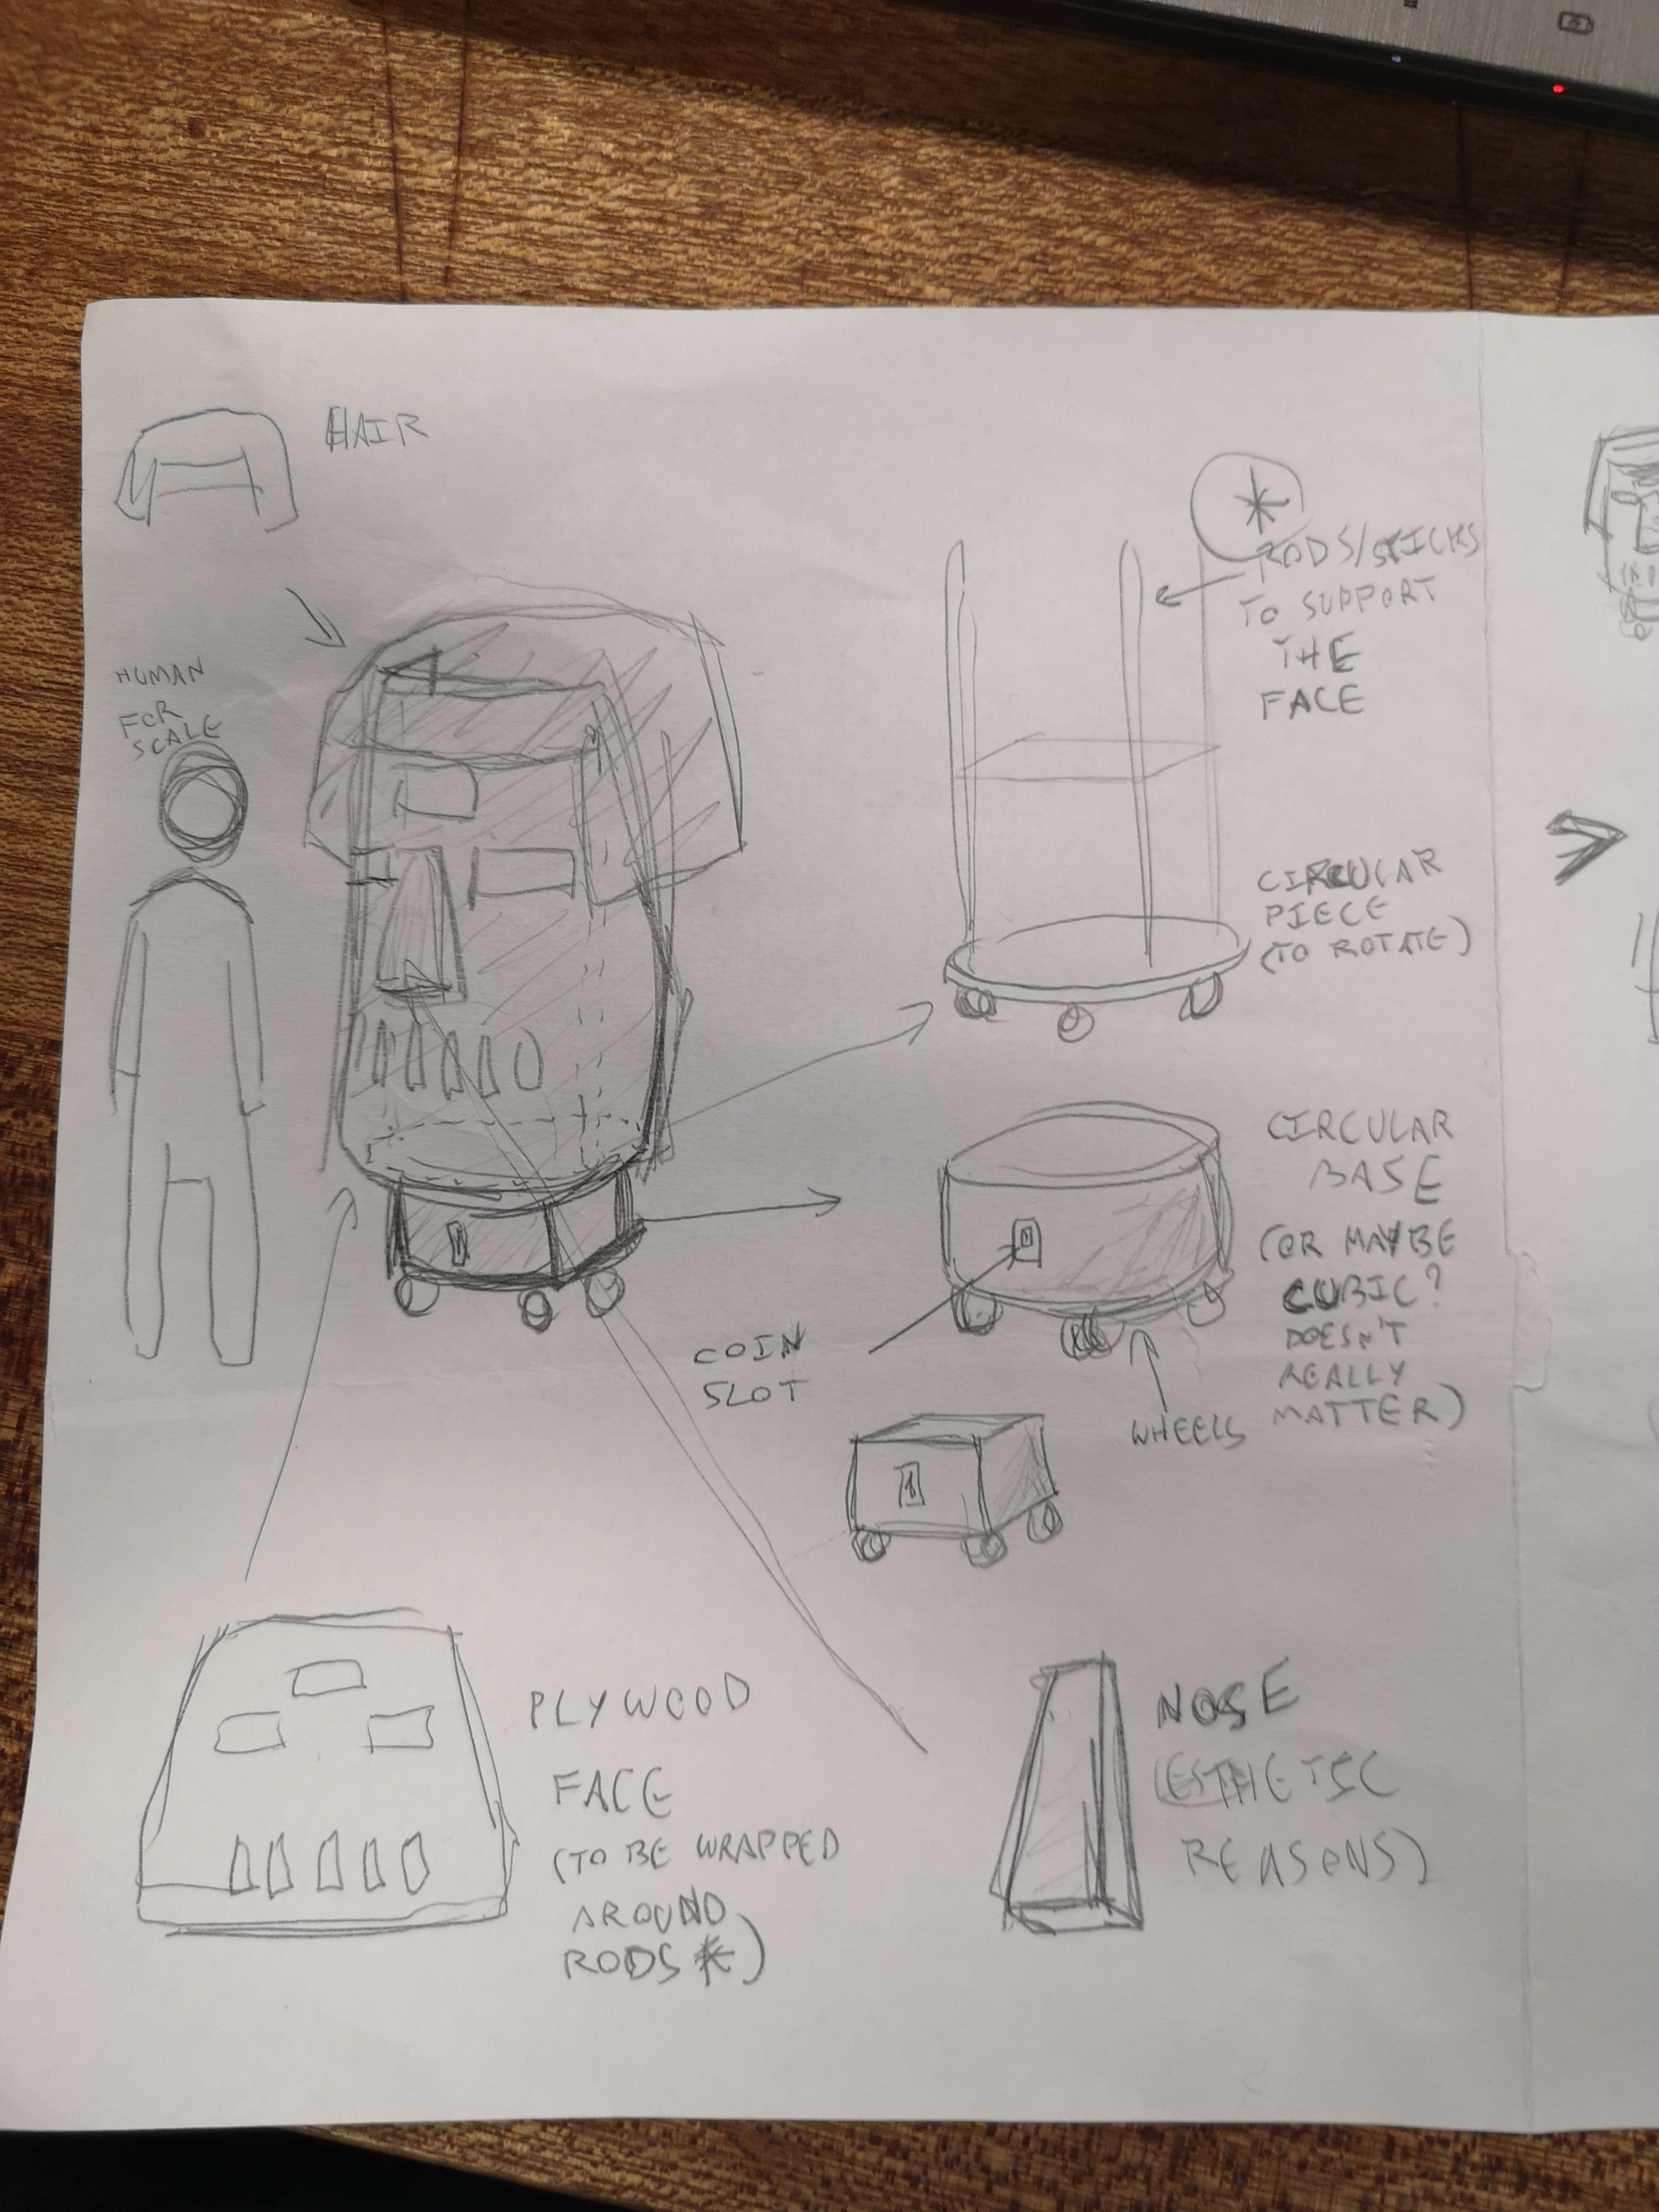 HAIR
HUMAN
FOR
SCALE
*
RODS/STICKS
TO SUPPORT
THE
FACE
CIRCULAR
PIECE
(TO ROTATE)
CIRCULAR
BASE
(OR MAYBE
CUBIC?
DOESN'T
REALLY
MATTER)
COIN
SLOT
WHEELS
PLYWOOD
FACE
(TO BE WRAPPED
AROUND
RODS *)
NOSE
(ESTHETIC
REASONS)